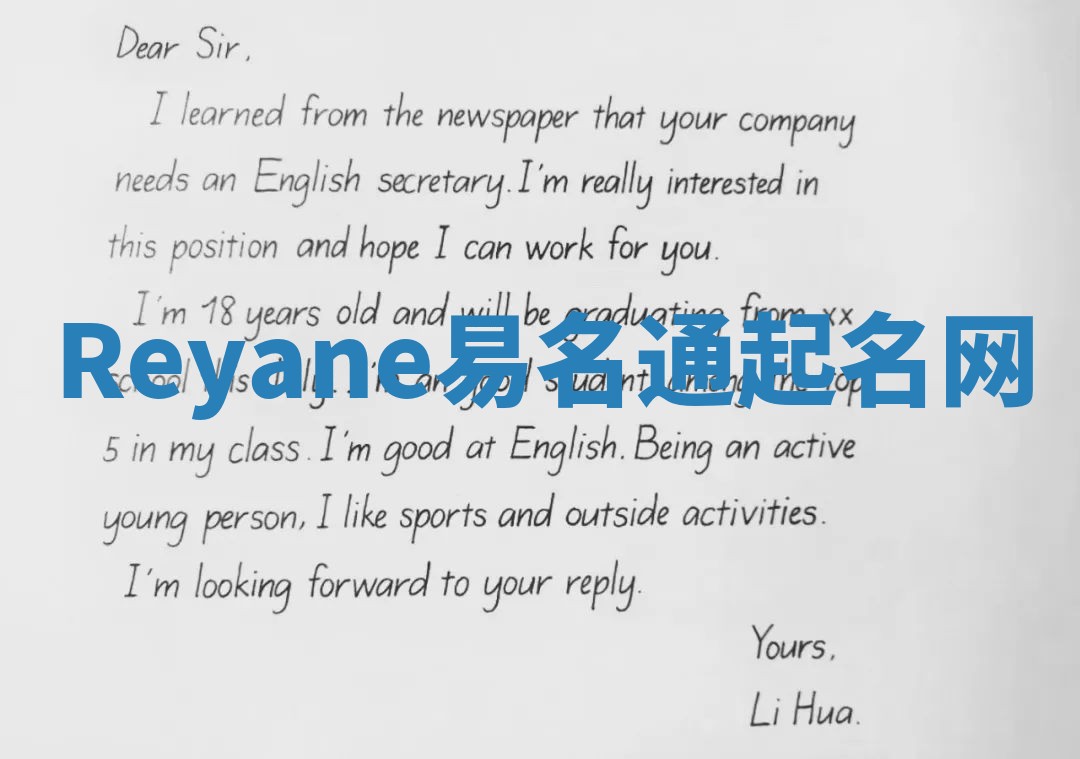 Dear Sir,
I learned from the newspaper that your company
needs an English secretary. I'm really interested in
this position and hope I can work for you.
I'm 18 years old and will be graduating from xx
Reyane易名通起名网
school this July. I'm a good student among the top
5 in my class. I'm good at English. Being an active
young person, I like sports and outside activities.
I'm looking forward to your reply.
Yours,
Li Hua.